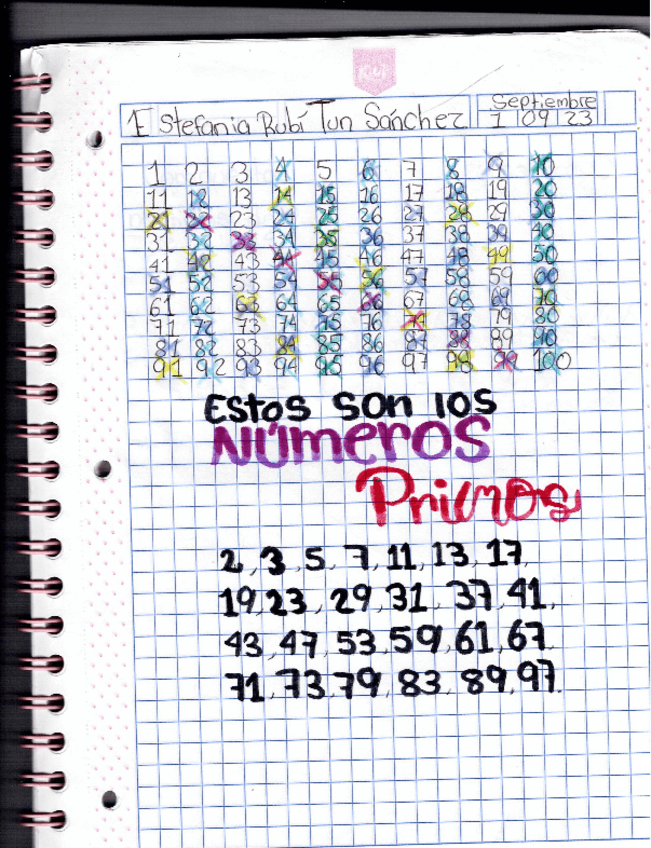 Kiut
Estefania Rubí Tun Sánchez
Septiembre
1 09 23
1 2 3 4 5 6 7 8 9 10
11 12 13 14 15 16 17 18 19 20
21 22 23 24 25 26 27 28 29 30
31 32 33 34 35 36 37 38 39 40
41 42 43 44 45 46 47 48 49 50
51 52 53 54 55 56 57 58 59 60
61 62 63 64 65 66 67 68 69 70
71 72 73 74 75 76 77 78 79 80
81 82 83 84 85 86 87 88 89 90
91 92 93 94 95 96 97 98 99 100
Estos son los
Números
Primos
2, 3, 5, 7, 11, 13, 17,
19, 23, 29, 31, 37, 41,
43, 47, 53, 59, 61, 67,
71, 73, 79, 83, 89, 97.